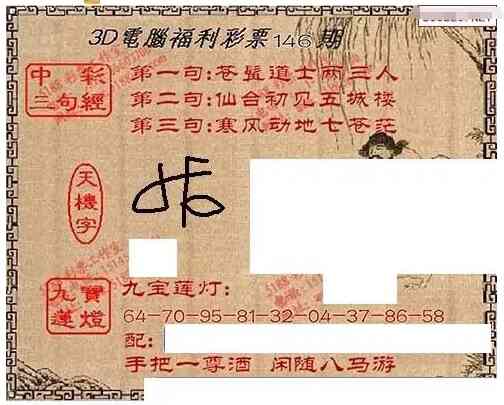 3D電腦福利彩票146期
中彩
三句經
第一句:苍髯道士两三人
第二句:仙台初见五城楼
第三句:寒风动地七苍茫
天機字
九寶
蓮燈
九宝莲灯:
64-70-95-81-32-04-37-86-58
配:
手把一尊酒 闲随八马游